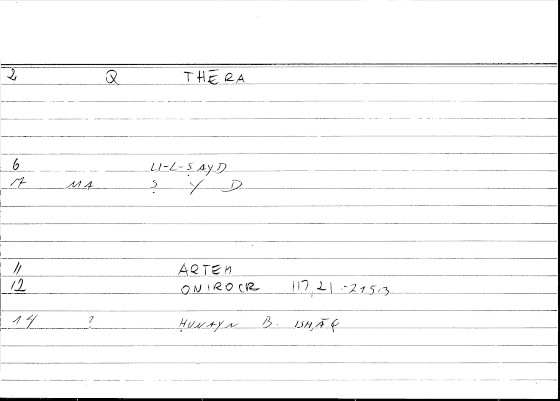 2 Q THERA
6 LI-L-ṢAYD
17 MA Ṣ Y D
11 ARTEM
12 ONIROCR 117,21-215.3
14 ? ḤUNAYN B. ISḤĀQ